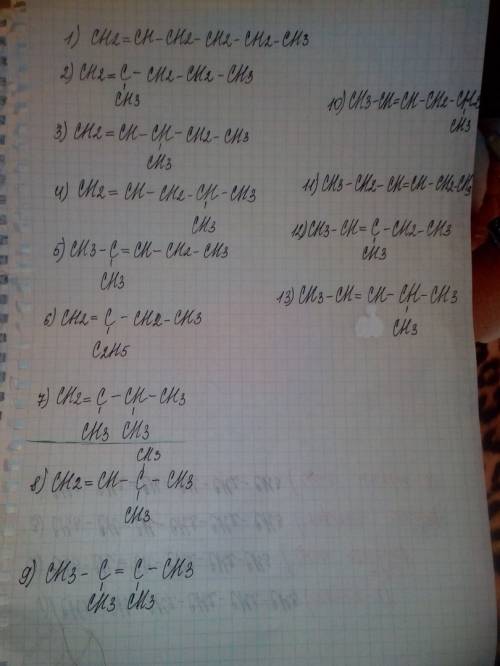 1) CH2=CH-CH2-CH2-CH2-CH3
2) CH2=C-CH2-CH2-CH3
CH3
3) CH2=CH-CH-CH2-CH3
CH3
4) CH2=CH-CH2-CH-CH3
CH3
5) CH3-C=CH-CH2-CH3
CH3
6) CH2=C-CH2-CH3
C2H5
7) CH2=C-CH-CH3
CH3 CH3
CH3
8) CH2=CH-C-CH3
CH3
9) CH3-C=C-CH3
CH3 CH3
10) CH3-CH=CH-CH2-CH2
CH3
11) CH3-CH2-CH=CH-CH2-CH3
12) CH3-CH=C-CH2-CH3
CH3
13) CH3-CH=CH-CH-CH3
CH3